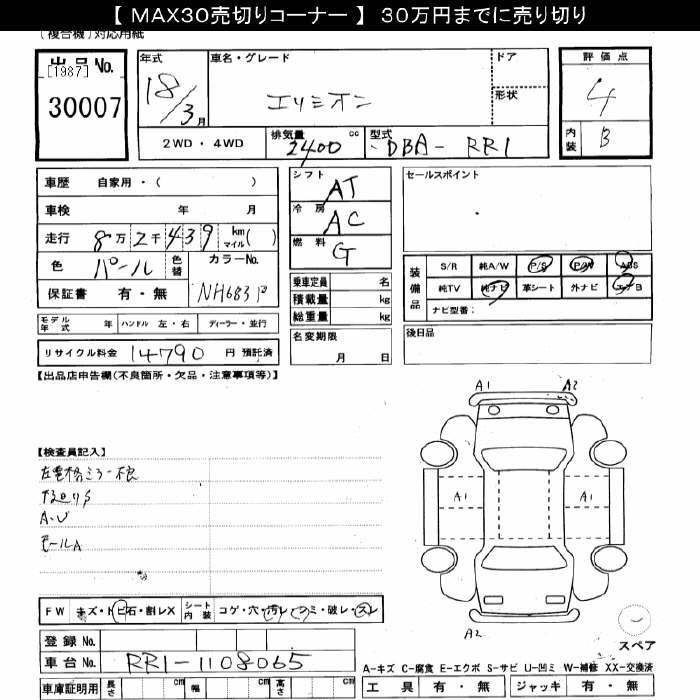 【 MAX30売切りコーナー 】 30万円までに売り切り
(複合機)対応用紙
出品No.
[1987]
30007
年式
18/3月
車名・グレード
エリシオン
ドア
形状
評価点
4
内装 B
2WD・4WD
排気量 2400 cc
型式 DBA- RR1
車歴 自家用・( )
車検 年 月
走行 8万2千439 km マイル( )
色 パール
色替
カラーNo. NH683P
保証書 有・無
シフト AT
冷房 AC
燃料 G
乗車定員 名
積載量 kg
総重量 kg
セールスポイント
装備品
S/R 純A/W P/S P/W ABS
純TV 純ナビ 革シート 外ナビ エアB
ナビ型番:
モデル年式 年 ハンドル 左・右 ディーラー・並行
名変期限
月 日
後日品
リサイクル料金 14790 円 預託済
【出品店申告欄(不良箇所・欠品・注意事項等)】
A1 A2
【検査員記入】
左電格ミラー不良
A1 A1
A・U
モールA
FW キズ・トビ石・割レX シート内装 コゲ・穴・汚レ・シミ・破レ・スレ
A2
スペア
登録No.
車台No. RR1-1108065
A-キズ C-腐食 E-エクボ S-サビ U-凹ミ W-補修 XX-交換済
車庫証明用 長さ cm 幅 cm 高さ cm
工具 有・無 ジャッキ 有・無